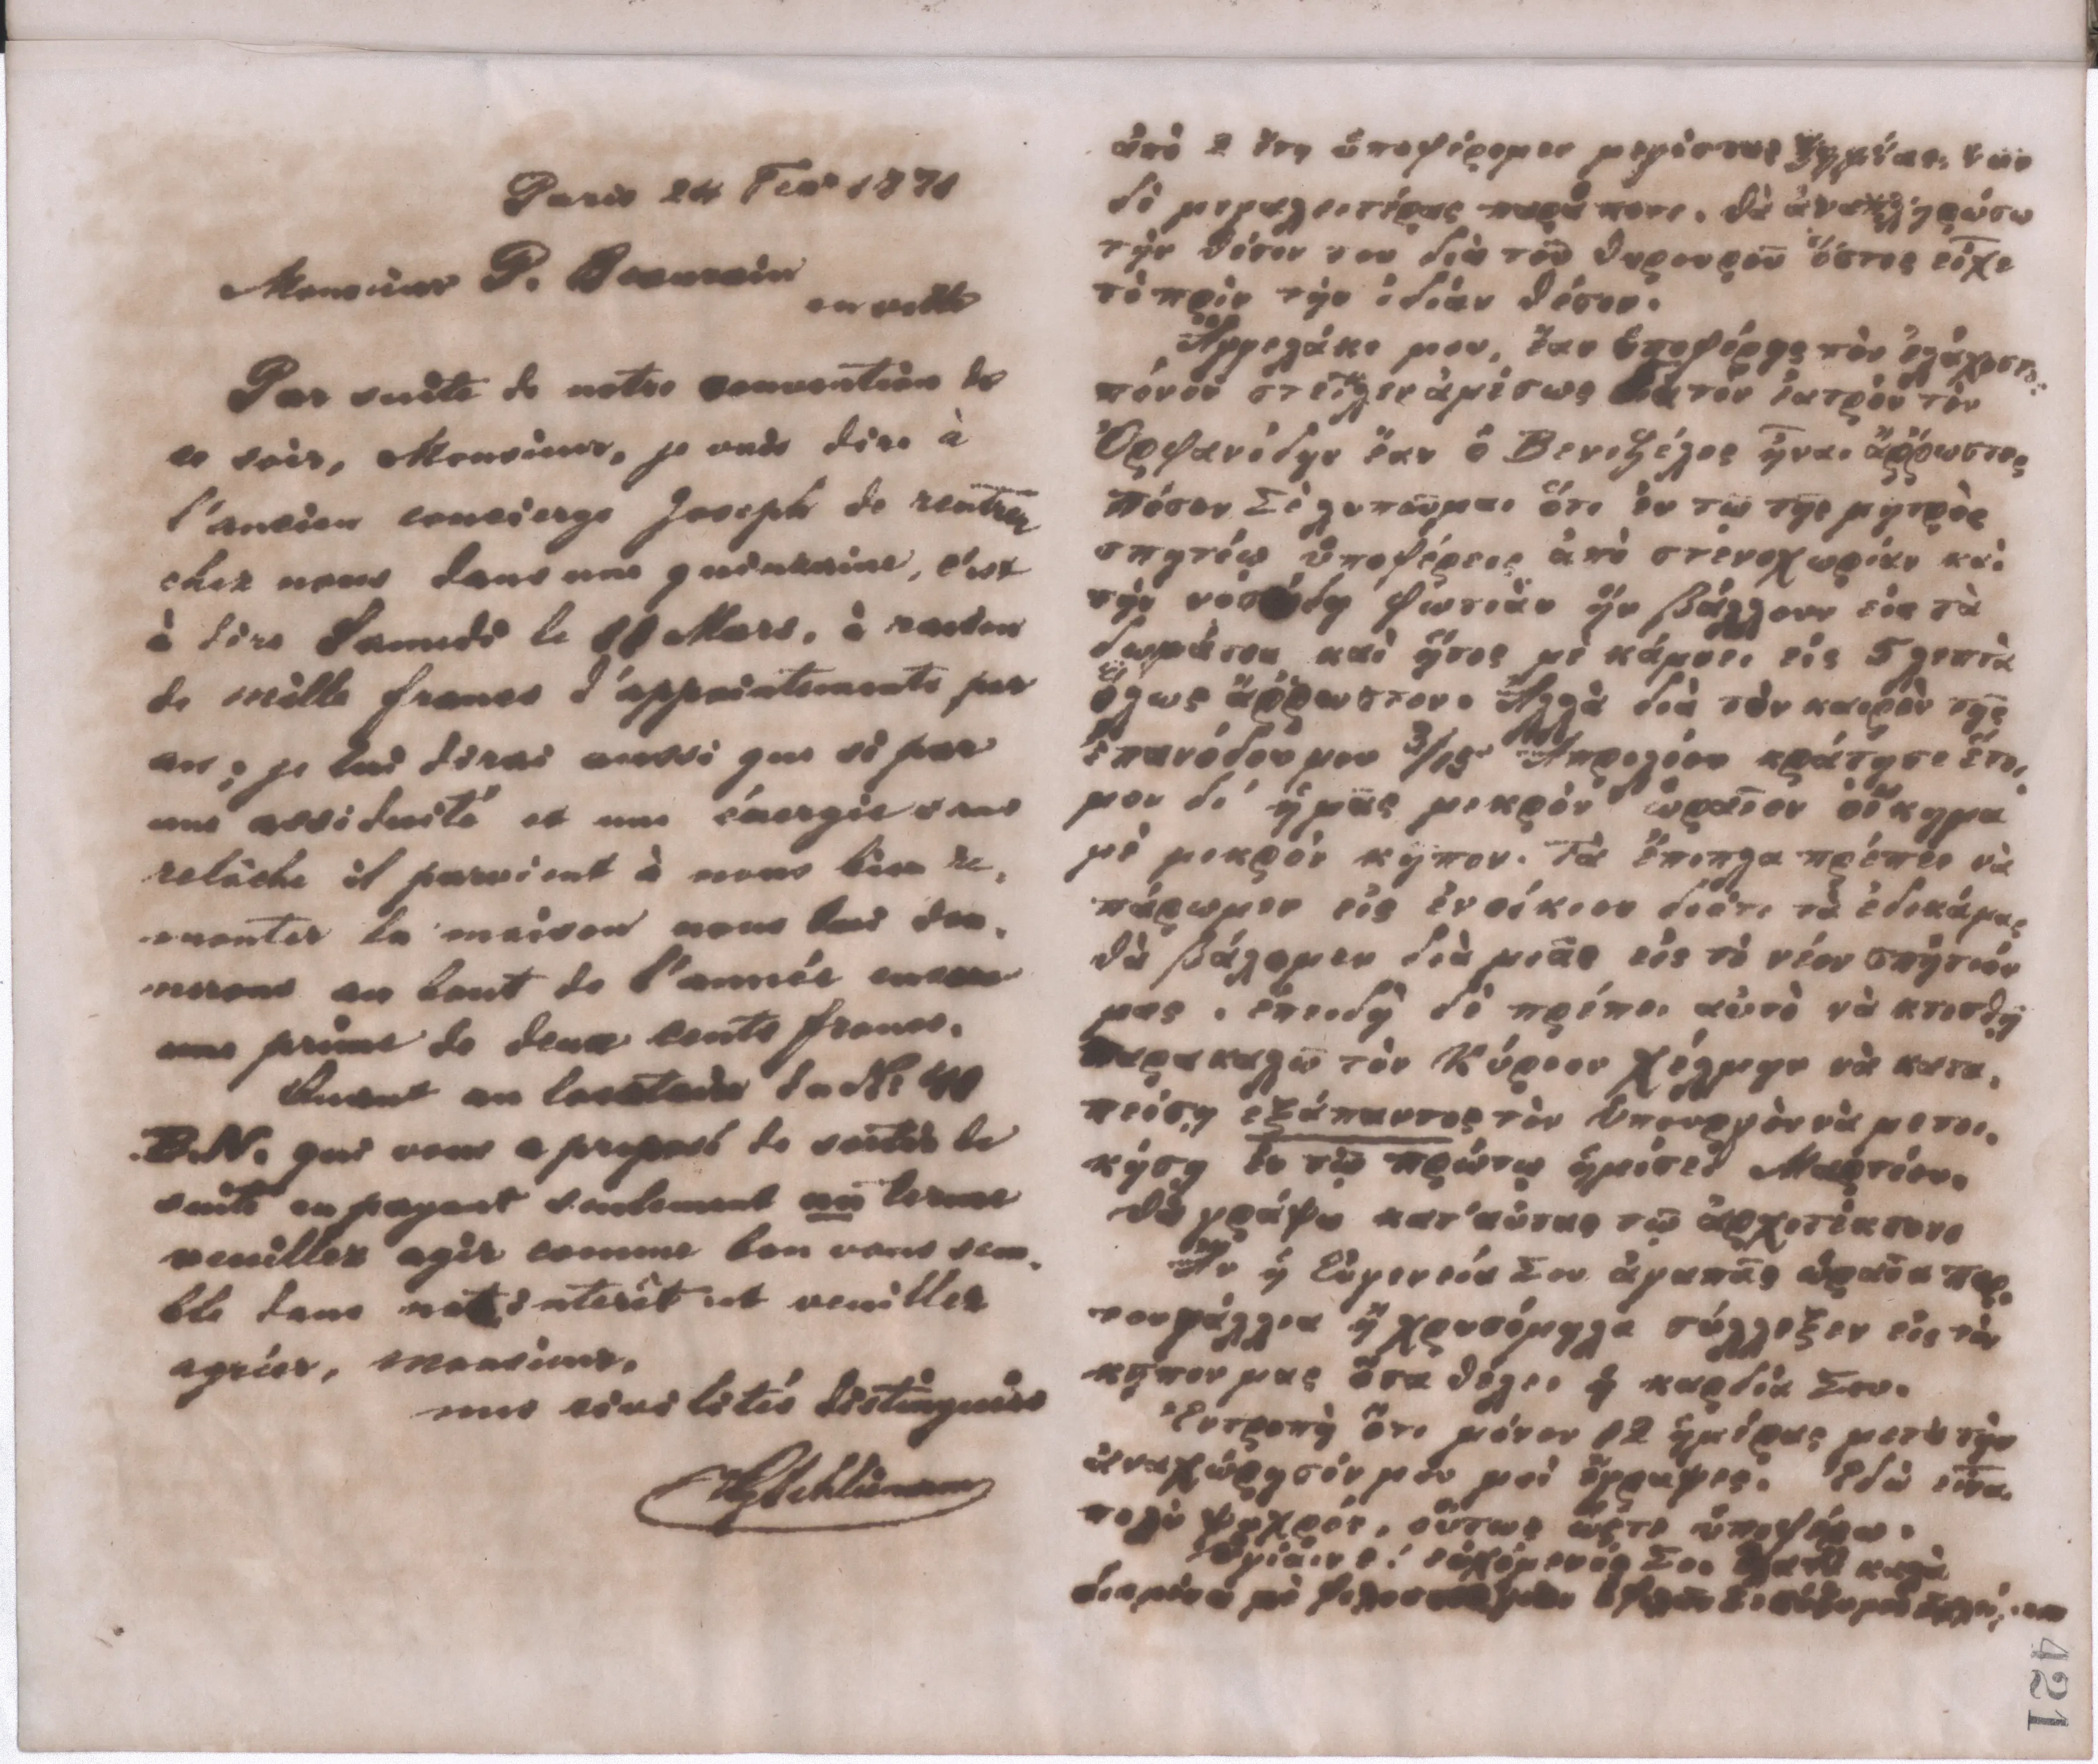 Paris 24 Fevr 1871
Monsieur P. Beaurain
en ville
Par suite de notre convention de
ce soir, Monsieur, je vais dire à
l'ancien concierge Joseph de rentrer
chez nous dans une quinzaine, c'est
à dire Samedi le 11 Mars, à raison
de mille francs d'appointements par
an; je lui dirai aussi que si par
une assiduité et une énergie sans
relâche il parvient à nous bien re-
monter la maison nous lui don-
nerons au bout de l'année encore
une prime de deux cents francs.
Quant au locataire du No 40
B.N. qui vous a proposé de sortir de
suite en payant seulement un terme
veuillez agir comme bon vous sem-
ble dans not interêt et veuillez
agréer, monsieur,
mes civilités distinguées
HySchliemann
ἀπὸ 2 ἔτη ὑποφέρομεν μεγίστας ζημίας, νῦν
δὲ μεγαλειτέρας παρὰ ποτε. Θὰ ἀναπληρώσω
τὴν θέσιν του διὰ τοῦ θυρουροῦ ὅστις εἶχε
τὸ πρὶν τὴν ἰδίαν θέσιν.
Ἀγγελάκι μου, ἔαν ὑποφέρῃς τὸν ἐλάχιστο
πόνον στεῖλεν ἀμέσως διὰ τὸν ἰατρὸν τὸν
Ὀρφανίδην ἔαν ὁ Βενιζέλος ἦναι ἄῤῥωστος
Πόσον Σὲ λυποῦμαι ὅτι ἐν τῷ τῆς μητρὸς
σπητίῳ ὑποφέρεις ἀπὸ στενοχωρίαν καὶ
τὴν φωτιὰν ἣν βάλλουν εἰς τὰ
δωμάτια καὶ ἥτις μὲ κάμνει εἰς 5 λεπτὰ
ὅλως ἄῤῥωστον. Ἀλλὰ διὰ τὸν καιρὸν τῆς
ἐπανόδου μου 3/15 Ἀπριλίου κράτησε ἕτοι-
μον δι' ἡμᾶς μικρὸν ὡραῖον οἴκημα
μὲ μικρὸν κῆπον. Τὰ ἔπιπλα πρέπει νὰ
πάρωμεν εἰς ἐνοίκιον διότι τὰ ἐδικάμας
θὰ βάλομεν διὰ μιᾶς εἰς τὸ νέον σπήτιόν
μας. ἐπειδὴ δὲ πρέπει αὐτὸ νὰ κτισθῇ
παρακαλῶ τὸν Κύριον Χέλμην νὰ κατα-
πείσῃ ἐξάπαντος τὸν ὑπουργὸν νὰ μετοι-
κήσῃ ἐν τῷ πρώτῳ ἡμίσει Μαρτίου.
Θὰ γράψω κατ' αὐτὰς τῷ ἀρχιτέκτονι
Ἂν ἡ Εὐγενεία Σου ἀγαπᾷς ὡραῖα πορ-
τουγάλλια ἢ χρυσόμηλα σύλλεξεν εἰς τὸν
κῆπον μας ὅσα θέλει ἡ καρδία Σου.
Ἐντροπὴ ὅτι μόνον 12 ἡμέρας μετὰ τὴν
ἀναχώρησίν μου μοὶ ἔγραψες. Ἐδὼ εἶναι
πολὺ ψυχρόν, οὕτως ὥστε ὑποφέρω.
Ὑγίαινε! εὐχόμενός Σοι καλὰ
421